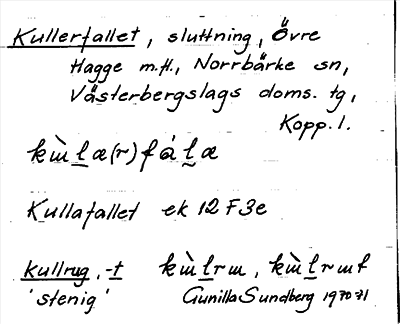 Kullerfallet, sluttning, Övre
Hagge m.fl., Norrbärke sn,
Västerbergslags doms. tg,
Kopp. l.
kɯ̀l̲æ(r)fál̲æ
Kullafallet ek 12 F3e
kullrug, -t kɯ̀l̲rɯ, kɯ̀l̲rɯt
'stenig' Gunilla Sundberg 1970-71